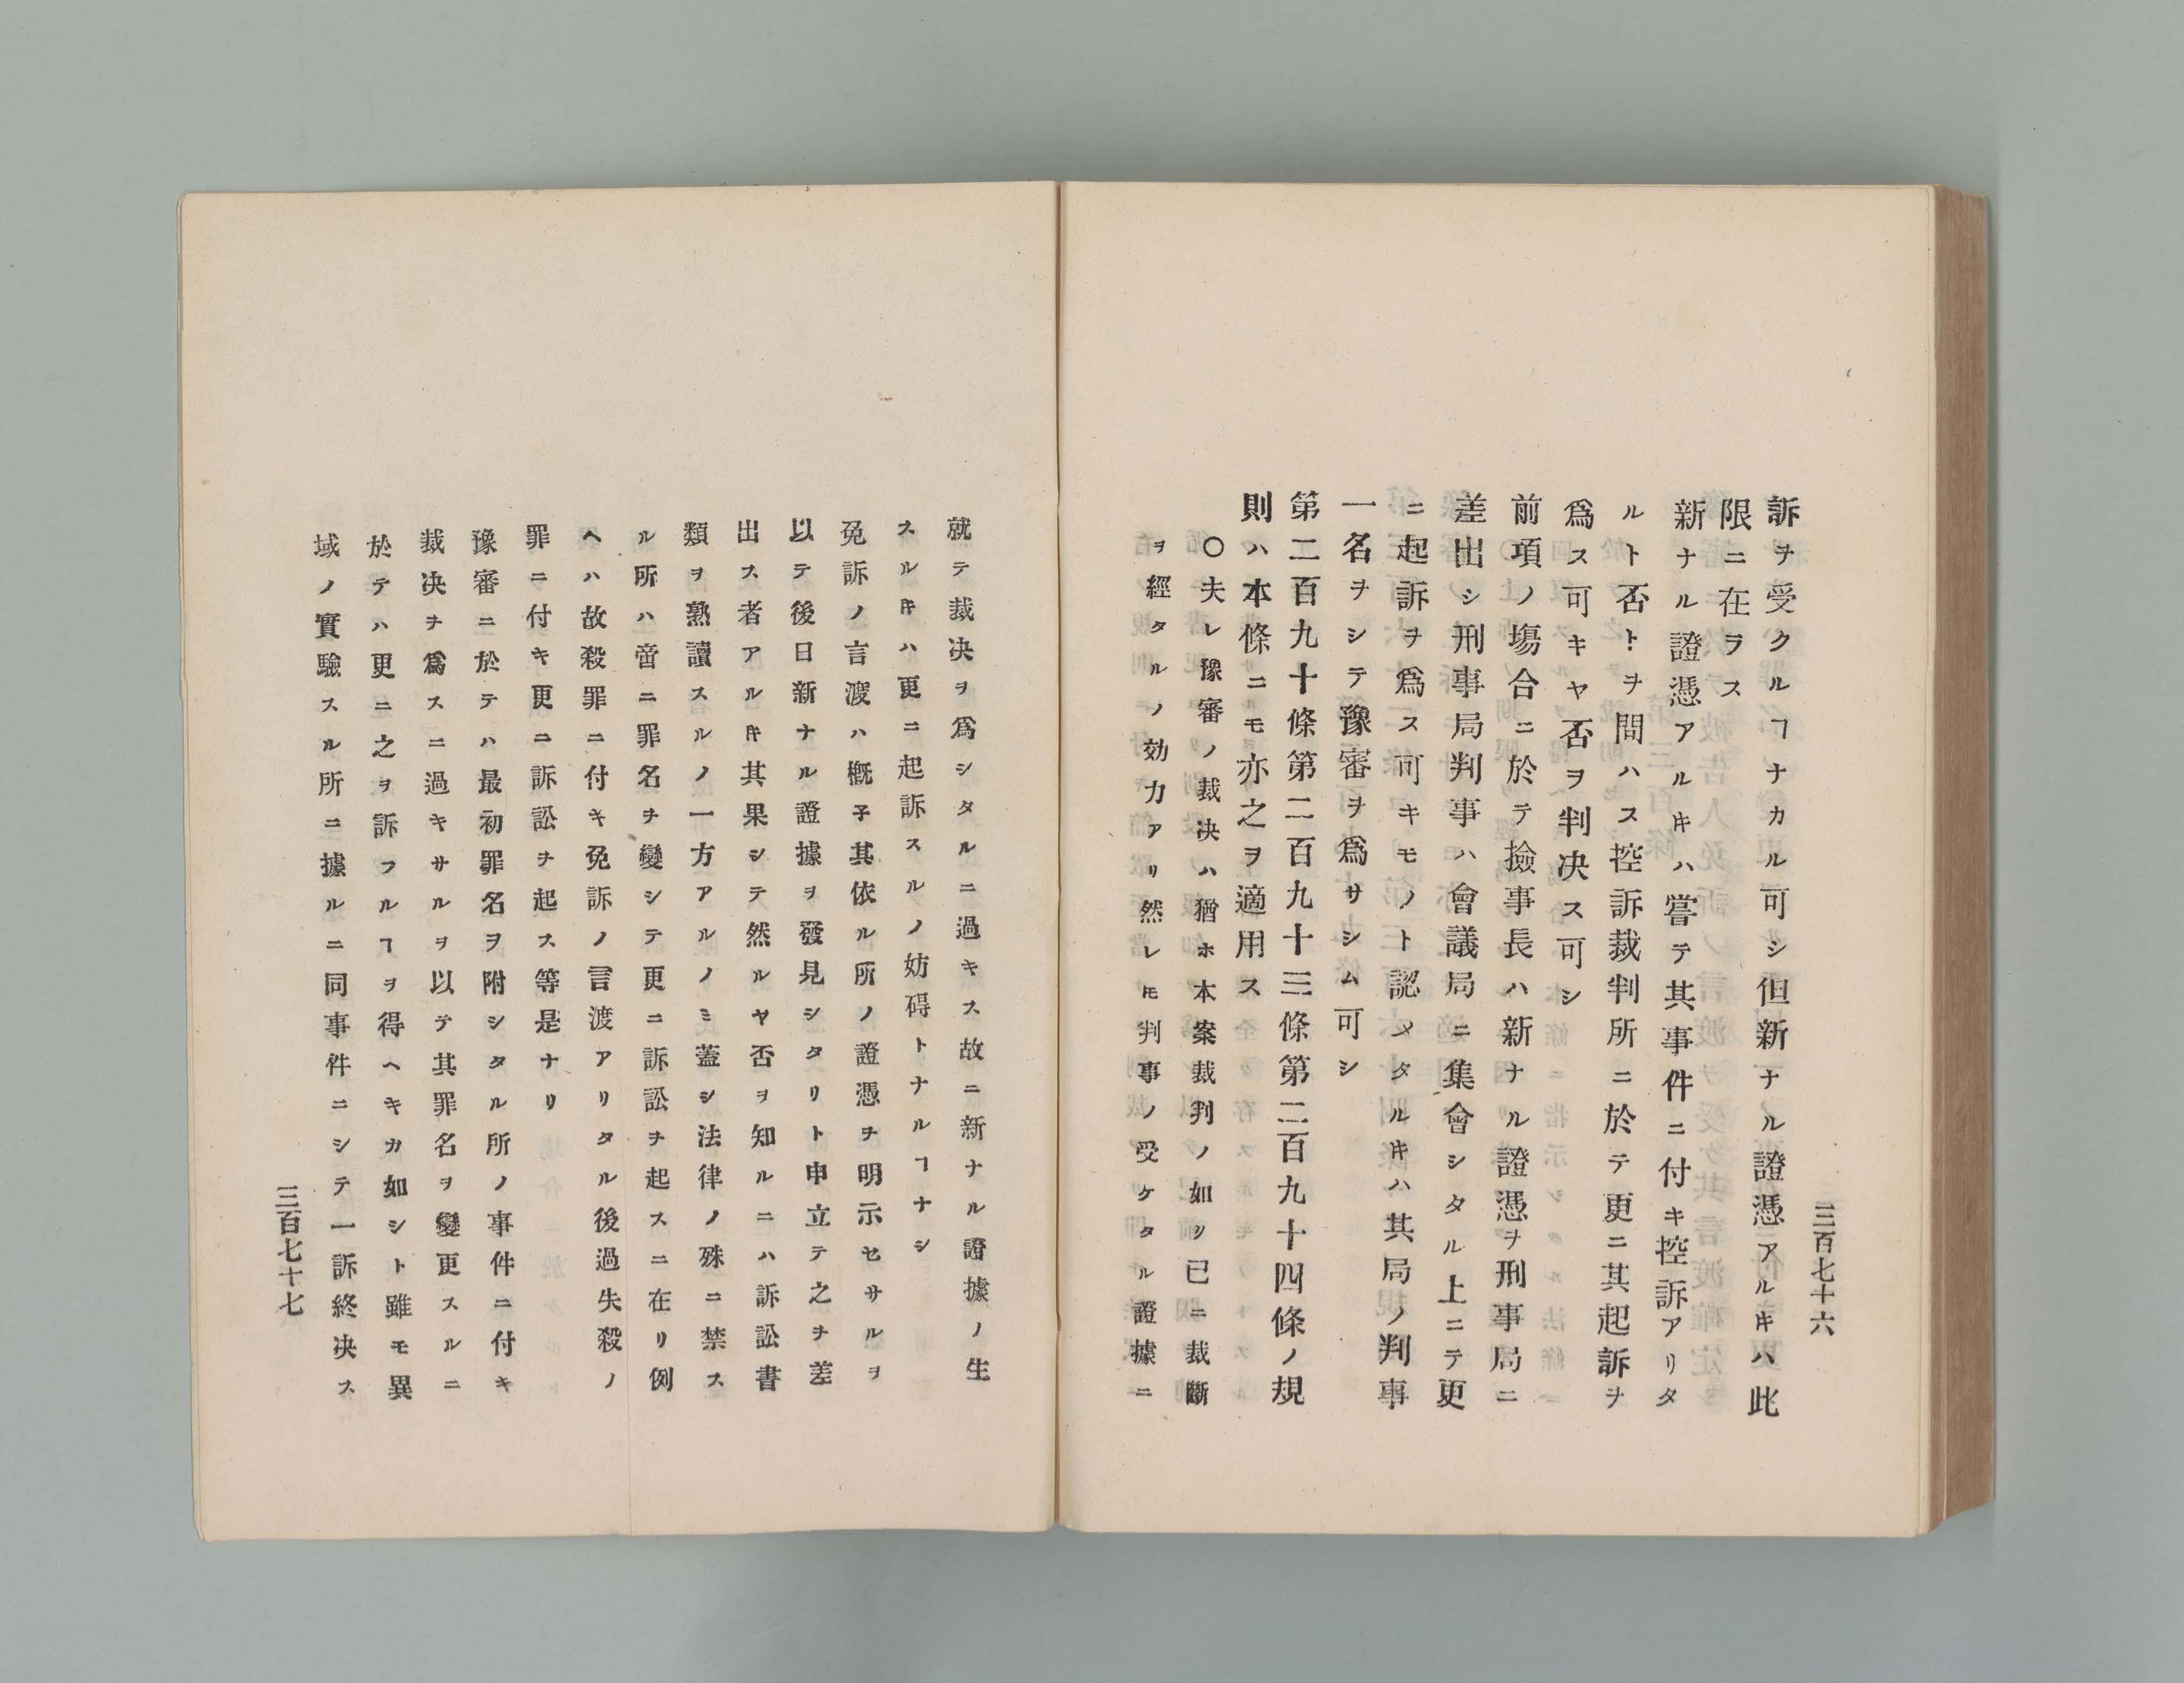 三百七十六
訴ヲ受クルヿナカル可シ但新ナル證憑アルキハ此
限ニ在ヲス
新ナル證憑アルキハ嘗テ其事件ニ付キ控訴アリタ
ルト否トヲ問ハス控訴裁判所ニ於テ更ニ其起訴ヲ
爲ス可キヤ否ヲ判决ス可シ
前項ノ塲合ニ於テ撿事長ハ新ナル證憑ヲ刑事局ニ
差出シ刑事局判事ハ會議局ニ集會シタル上ニテ更
ニ起訴ヲ爲ス可キモノト認メタルキハ其局ノ判事
一名ヲシテ豫審ヲ爲サシム可シ
第二百九十條第二百九十三條第二百九十四條ノ規
則ハ本條ニモ亦之ヲ適用ス
〇夫レ豫審ノ裁决ハ猶ホ本案裁判ノ如ク已ニ裁斷
ヲ經タルノ効力アリ然レ𪜈判事ノ受ケタル證據ニ
就テ裁决ヲ爲シタルニ過キス故ニ新ナル證據ノ生
スルキハ更ニ起訴スルノ妨碍トナルヿナシ
免訴ノ言渡ハ概子其依ル所ノ證憑ヲ明示セサルヲ
以テ後日新ナル證據ヲ發見シタリト申立テ之ヲ差
出ス者アルキ其果シテ然ルヤ否ヲ知ルニハ訴訟書
類ヲ熟讀スルノ一方アルノミ蓋シ法律ノ殊ニ禁ス
ル所ハ啻ニ罪名ヲ變シテ更ニ訴訟ヲ起スニ在リ例
ヘハ故殺罪ニ付キ免訴ノ言渡アリタル後過失殺ノ
罪ニ付キ更ニ訴訟ヲ起ス等是ナリ
豫審ニ於テハ最初罪名ヲ附シタル所ノ事件ニ付キ
裁决ヲ爲スニ過キサルヲ以テ其罪名ヲ變更スルニ
於テハ更ニ之ヲ訴フルヿヲ得ヘキカ如シト雖モ異
域ノ實驗スル所ニ據ルニ同事件ニシテ一訴終决ス
三百七十七